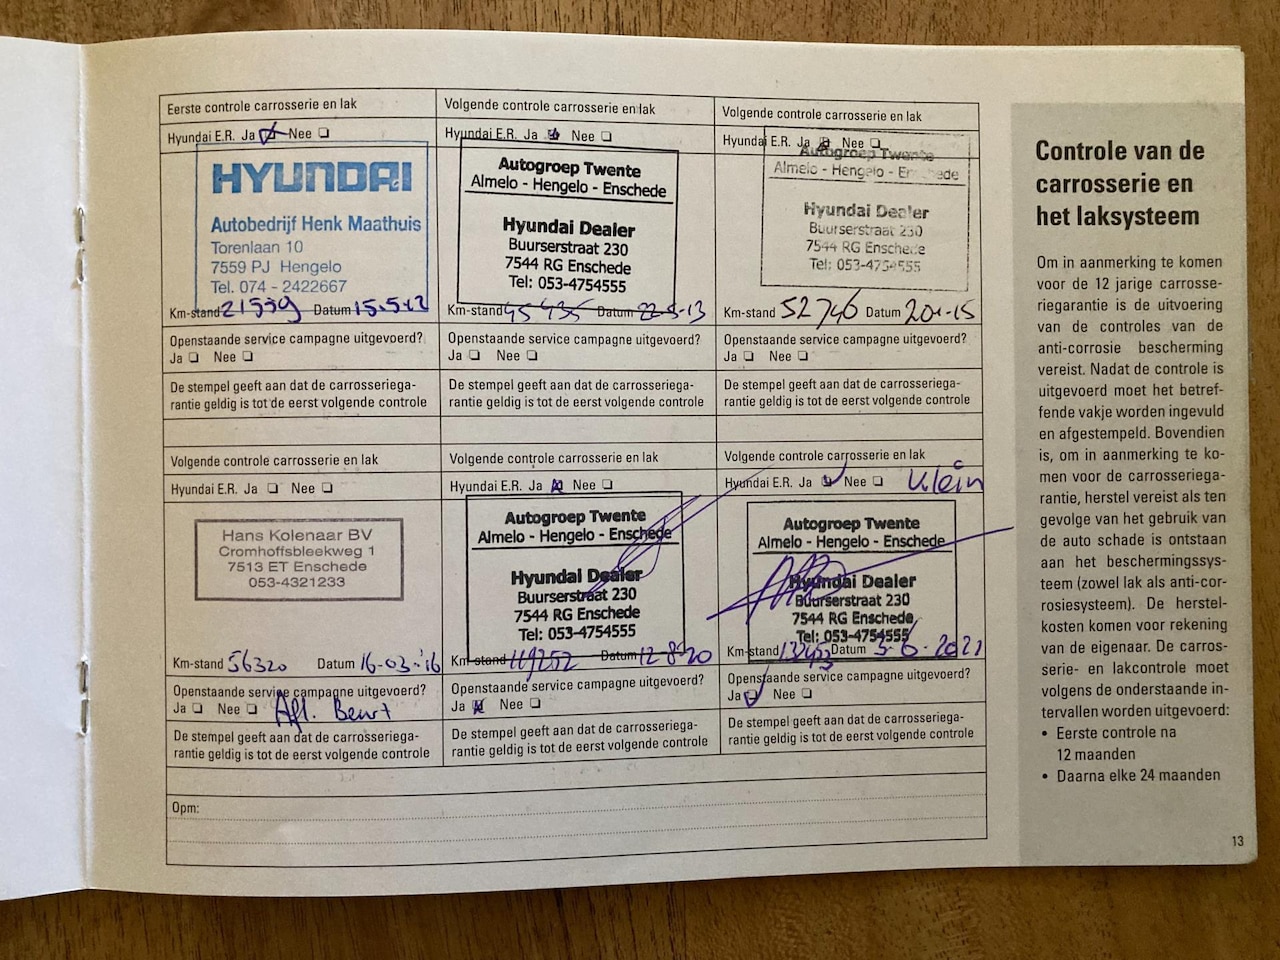 Eerste controle carrosserie en lak
Hyundai E.R. Ja Nee
HYUNDAI
Autobedrijf Henk Maathuis
Torenlaan 10
7559 PJ Hengelo
Tel. 074 - 2422667
Km-stand 21559 Datum 15.5.12
Openstaande service campagne uitgevoerd?
Ja Nee
De stempel geeft aan dat de carrosseriega-
rantie geldig is tot de eerst volgende controle
Volgende controle carrosserie en lak
Hyundai E.R. Ja Nee
Autogroep Twente
Almelo - Hengelo - Enschede
Hyundai Dealer
Buurserstraat 230
7544 RG Enschede
Tel: 053-4754555
Km-stand 45435 Datum 22-5-13
Openstaande service campagne uitgevoerd?
Ja Nee
De stempel geeft aan dat de carrosseriega-
rantie geldig is tot de eerst volgende controle
Volgende controle carrosserie en lak
Hyundai E.R. Ja Nee
Autogroep Twente
Almelo - Hengelo - Enschede
Hyundai Dealer
Buurserstraat 230
7544 RG Enschede
Tel: 053-4754555
Km-stand 52746 Datum
Openstaande service campagne uitgevoerd?
Ja Nee
De stempel geeft aan dat de carrosseriega-
rantie geldig is tot de eerst volgende controle
Volgende controle carrosserie en lak
Hyundai E.R. Ja Nee
Hans Kolenaar BV
Cromhoffsbleekweg 1
7513 ET Enschede
053-4321233
Km-stand 56320 Datum 16-03-'16
Openstaande service campagne uitgevoerd?
Ja Nee Afl. Beurt
De stempel geeft aan dat de carrosseriega-
rantie geldig is tot de eerst volgende controle
Volgende controle carrosserie en lak
Hyundai E.R. Ja Nee
Autogroep Twente
Almelo - Hengelo - Enschede
Hyundai Dealer
Buurserstraat 230
7544 RG Enschede
Tel: 053-4754555
Km-stand 119252 Datum 12-8-20
Openstaande service campagne uitgevoerd?
Ja Nee
De stempel geeft aan dat de carrosseriega-
rantie geldig is tot de eerst volgende controle
Volgende controle carrosserie en lak
Hyundai E.R. Ja Nee Klein
Autogroep Twente
Almelo - Hengelo - Enschede
Hyundai Dealer
Buurserstraat 230
7544 RG Enschede
Tel: 053-4754555
Km-stand Datum
Openstaande service campagne uitgevoerd?
Ja Nee
De stempel geeft aan dat de carrosseriega-
rantie geldig is tot de eerst volgende controle
Opm:
Controle van de
carrosserie en
het laksysteem
Om in aanmerking te komen
voor de 12 jarige carrosse-
riegarantie is de uitvoering
van de controles van de
anti-corrosie bescherming
vereist. Nadat de controle is
uitgevoerd moet het betref-
fende vakje worden ingevuld
en afgestempeld. Bovendien
is, om in aanmerking te ko-
men voor de carrosseriega-
rantie, herstel vereist als ten
gevolge van het gebruik van
de auto schade is ontstaan
aan het beschermingssys-
teem (zowel lak als anti-cor-
rosiesysteem). De herstel-
kosten komen voor rekening
van de eigenaar. De carros-
serie- en lakcontrole moet
volgens de onderstaande in-
tervallen worden uitgevoerd:
• Eerste controle na
12 maanden
• Daarna elke 24 maanden
13